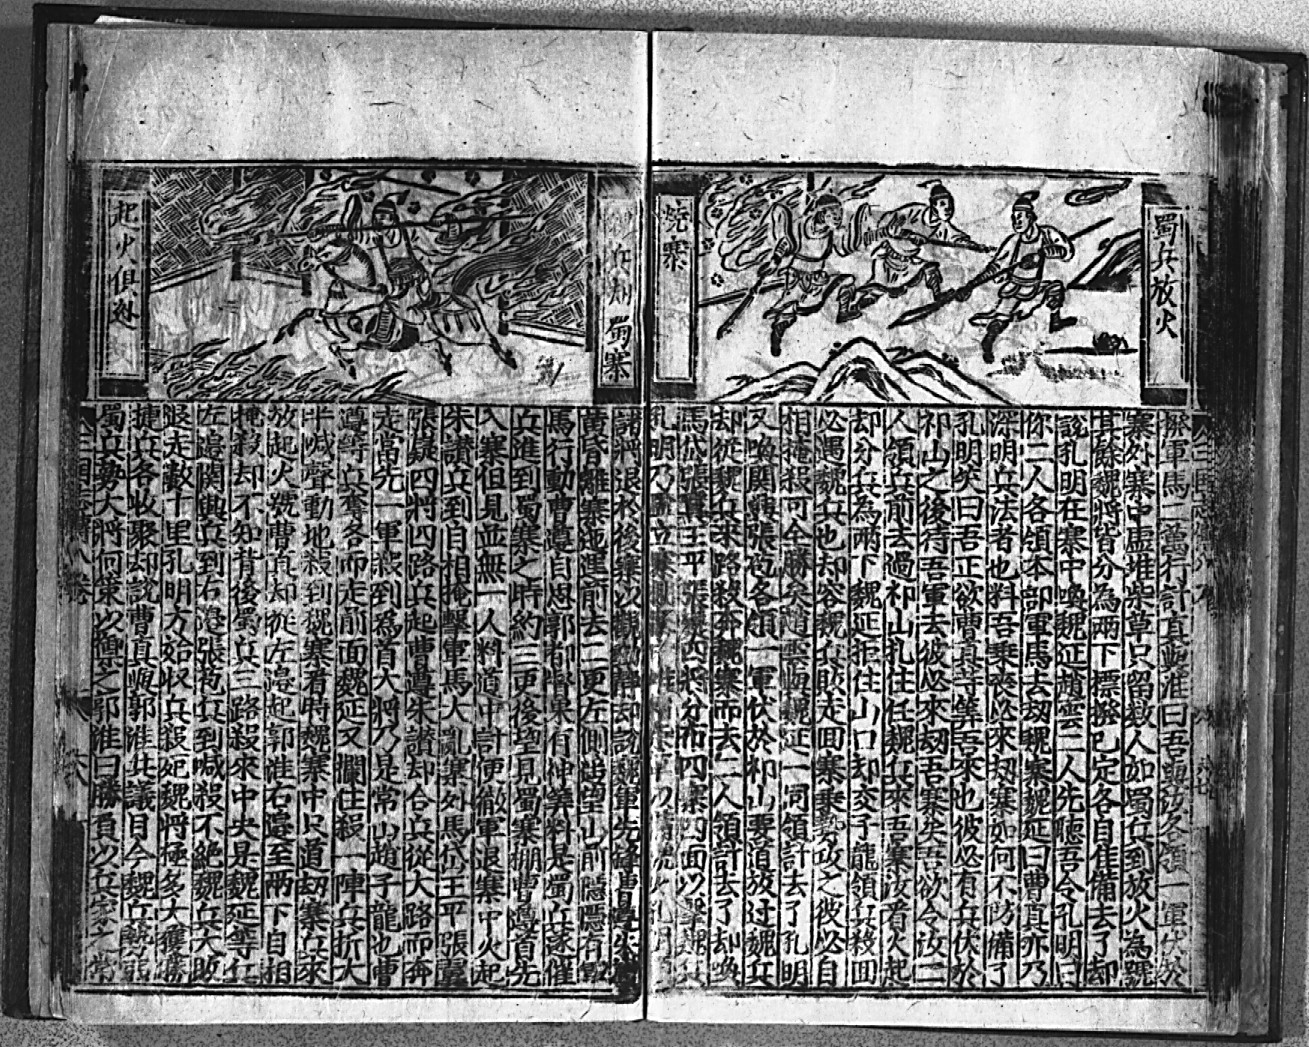 蜀兵放火
燒寨
撥軍馬二萬行計真與淮曰吾與汝各領一軍伏於
寨外寨中虛堆柴草只留数人如蜀兵到放火為號
其餘魏將皆分為兩下標撥已定各自佳備去了却
說孔明在寨中喚魏延趙雲二人先聽吾令孔明曰
你二人各領本部軍馬去刼魏寨魏延曰曹真亦乃
深明兵法者也料吾乗喪必來刼寨如何不防備了
孔明笑曰吾正欲曹真等筭吾來也彼必有兵伏於
祁山之後待吾軍去彼必來刼吾寨矣吾欲令汝二
人領兵前去過祁山扎住任魏兵來吾寨汝看火起
却分兵為兩下魏延拒住山口却交子龍領兵殺回
必遇魏兵也却容魏兵敗走回寨乗勢攻之彼必自
相掩殺可全勝矣隨雲與魏延一同領計去了孔明
又喚関興張苞各領一軍伏於祁山要道放过魏兵
却從魏兵來路殺奔魏寨而去二人領計去了却喚
馬岱張翼王平張嶷四將分布四寨四面以擊魏兵
孔明乃虛立寨
蜀寨
起火俱迯
諸將退於後寨以觀動静却說魏軍先鋒曹遵朱讃
黄昏離寨迤進前去二更左側遥望山前隱隱有
馬行動曹遵自思郭都督果有神筭料是蜀兵遂催
兵進到蜀寨之時約三更後望見蜀寨柵曹遵首先
入寨但見並無一人料道中計便徹軍退寨中火起
朱讃兵到自相掩擊軍馬大亂寨外馬岱王平張翼
張嶷四將四路兵起曹遵朱讃却合兵從大路而奔
走當先一軍殺到為首大將乃是常山趙子龍也曹
遵等兵奪各而走前面魏延又攔住殺一陣兵折大
半喊聲動地殺到魏寨看時魏寨中只道刼寨兵來
放起火號曹真却從左邉起郭淮右邉至兩下自相
掩殺却不知背後蜀兵三路殺來中央是魏延等仁
左邉関興兵到右邉張苞兵到喊殺不絕魏兵大敗
退走数十里孔明方始收兵殺死魏將極多大獲勝
捷兵各收聚却說曹真與郭淮共議目今魏兵勢
蜀兵勢大將何策以禦之郭淮曰勝負以兵家之常